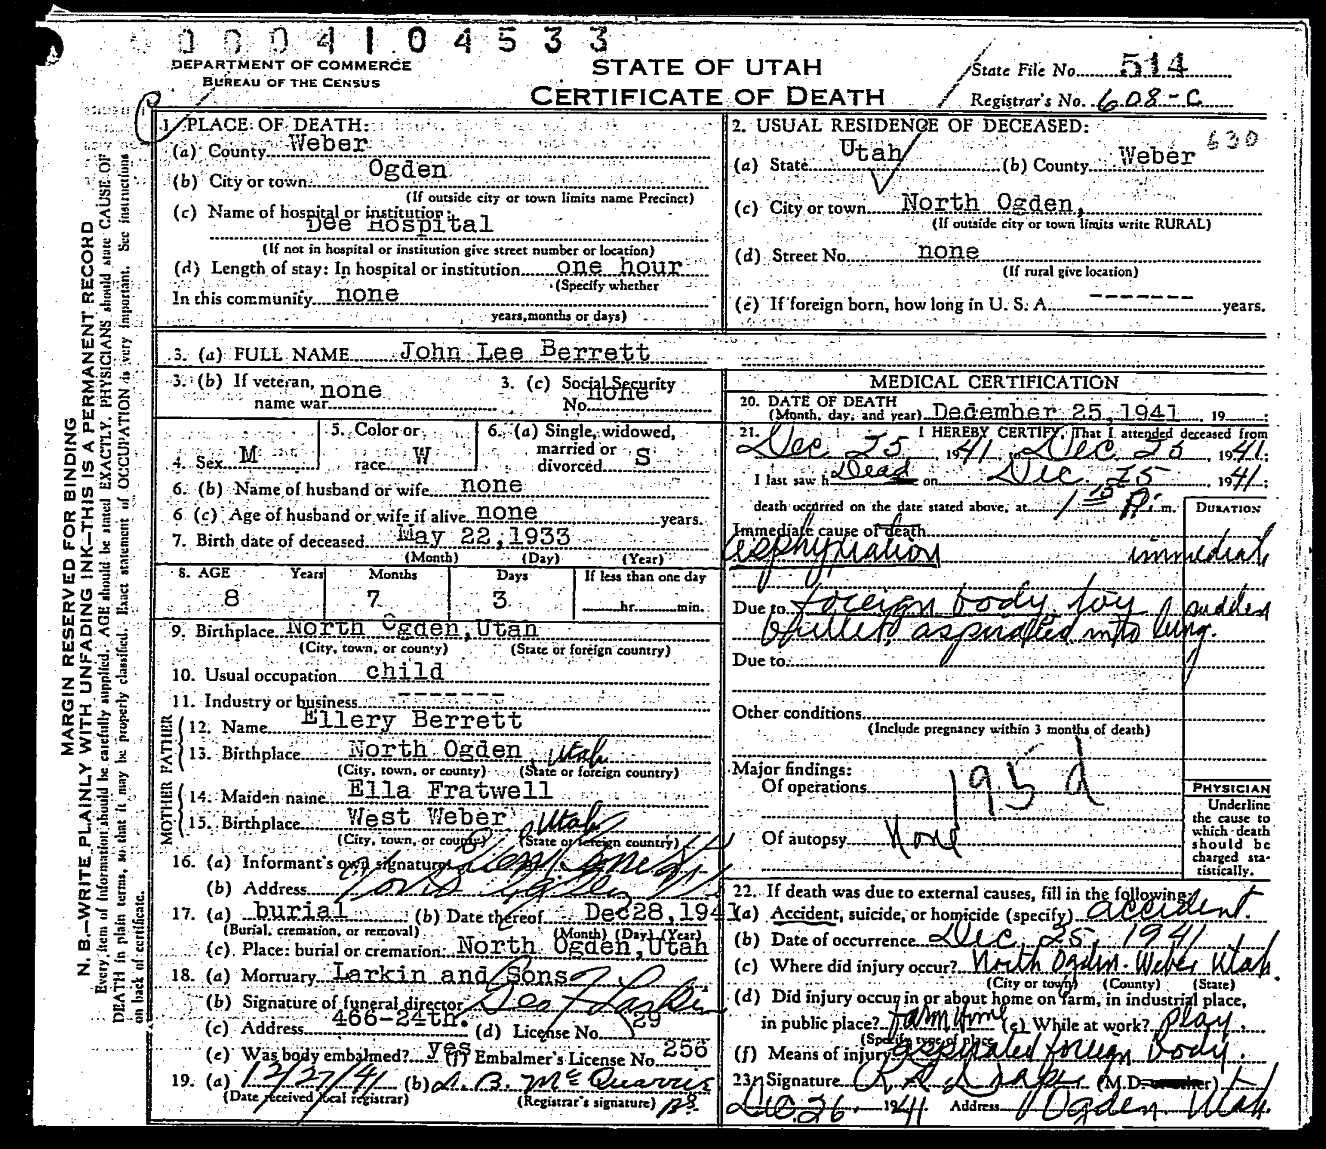 0004104533
DEPARTMENT OF COMMERCE
BUREAU OF THE CENSUS
STATE OF UTAH
CERTIFICATE OF DEATH
State File No. 514
Registrar's No. 608-C
MARGIN RESERVED FOR BINDING
N. B.—WRITE PLAINLY WITH UNFADING INK—THIS IS A PERMANENT RECORD
Every item of information should be carefully supplied. AGE should be stated EXACTLY. PHYSICIANS should state CAUSE OF
DEATH in plain terms, so that it may be properly classified. Exact statement of OCCUPATION is very important. See instructions
on back of certificate.
1. PLACE OF DEATH:
(a) County Weber
(b) City or town Ogden
(If outside city or town limits name Precinct)
(c) Name of hospital or institution:
Dee Hospital
(If not in hospital or institution give street number or location)
(d) Length of stay: In hospital or institution one hour
(Specify whether
In this community none
years, months or days)
2. USUAL RESIDENCE OF DECEASED:
630
(a) State Utah (b) County Weber
(c) City or town North Ogden,
(If outside city or town limits write RURAL)
(d) Street No. none
(If rural give location)
(e) If foreign born, how long in U. S. A. -------- years.
3. (a) FULL NAME John Lee Berrett
3. (b) If veteran, name war none
3. (c) Social Security No. none
4. Sex M
5. Color or race W
6. (a) Single, widowed, married or divorced S
6. (b) Name of husband or wife none
6 (c) Age of husband or wife if alive none years.
7. Birth date of deceased May 22, 1933
(Month) (Day) (Year)
8. AGE Years Months Days If less than one day
8 7 3 hr. min.
9. Birthplace North Ogden, Utah
(City, town, or county) (State or foreign country)
10. Usual occupation child
11. Industry or business --------
FATHER
12. Name Ellery Berrett
13. Birthplace North Ogden, Utah
(City, town, or county) (State or foreign country)
MOTHER
14. Maiden name Ella Fratwell
15. Birthplace West Weber, Utah
(City, town, or county) (State or foreign country)
16. (a) Informant's own signature
(b) Address
17. (a) burial (b) Date thereof Dec 28, 1941
(Burial, cremation, or removal) (Month) (Day) (Year)
(c) Place: burial or cremation North Ogden, Utah
18. (a) Mortuary Larkin and Sons
(b) Signature of funeral director Geo F Larkin
(c) Address 466-24th. (d) License No. 29
(e) Was body embalmed? yes (f) Embalmer's License No. 256
19. (a) 12/27/41 (b)
(Date received local registrar) (Registrar's signature)
MEDICAL CERTIFICATION
20. DATE OF DEATH
(Month, day, and year) December 25, 1941 19
21. I HEREBY CERTIFY, That I attended deceased from
Dec 25 1941 to Dec 25, 1941;
I last saw h Dead on Dec. 25, 1941;
death occurred on the date stated above, at 1 15 P. m.
DURATION
Immediate cause of death
asphyxiation immediate
Due to foreign body, toy sudden
bullet, aspirated into lung.
Due to
Other conditions
(Include pregnancy within 3 months of death)
Major findings:
Of operations
195 d
Of autopsy None
PHYSICIAN
Underline
the cause to
which death
should be
charged sta-
tistically.
22. If death was due to external causes, fill in the following:
(a) Accident, suicide, or homicide (specify) accident.
(b) Date of occurrence Dec. 25, 1941
(c) Where did injury occur? North Ogden - Weber Utah.
(City or town) (County) (State)
(d) Did injury occur in or about home on farm, in industrial place,
in public place? farm home (e) While at work? play.
(Specify type of place)
(f) Means of injury aspirated foreign body.
23. Signature (M.D. or other)
Dec. 26 1941 Address Ogden Utah.